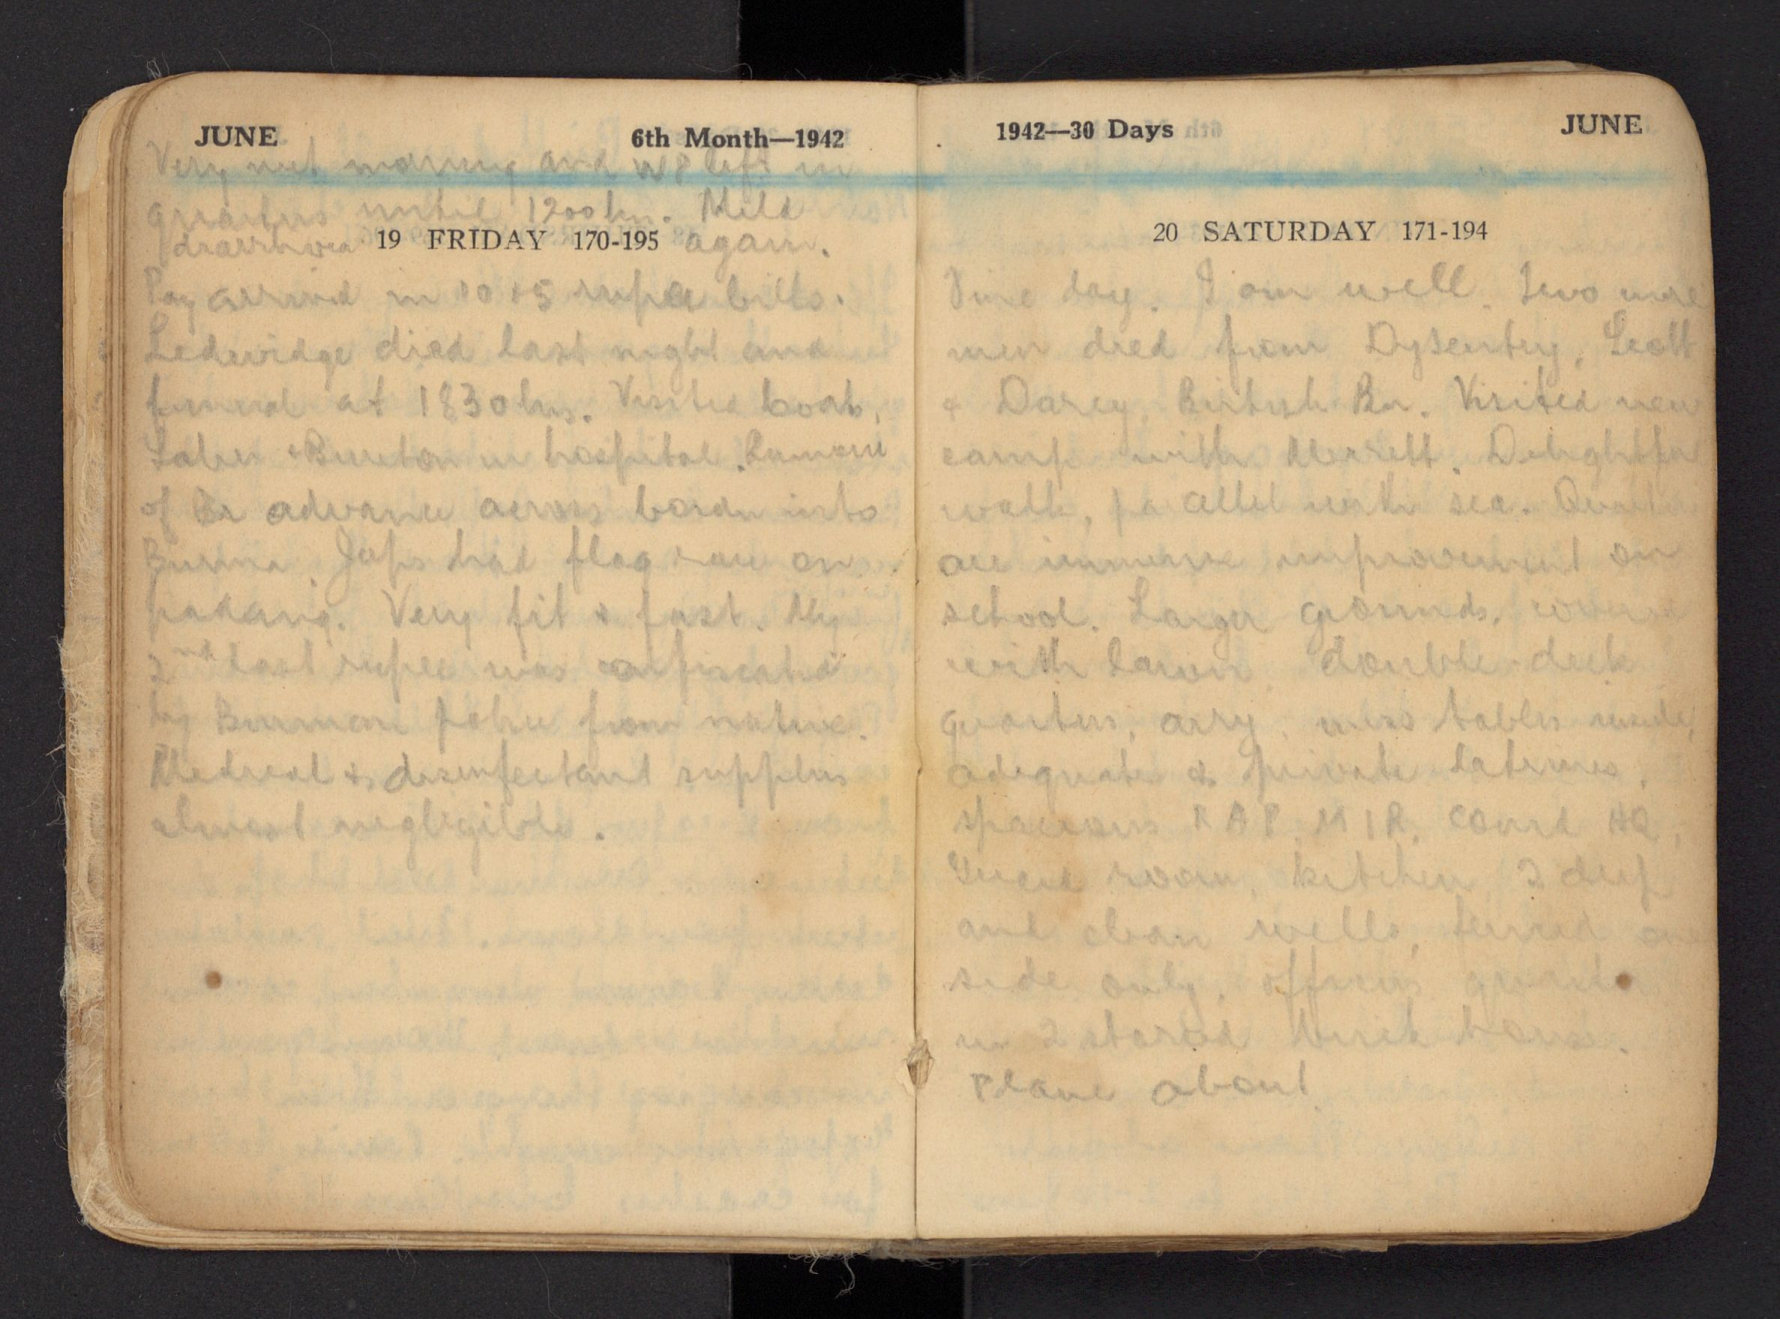 JUNE 6th Month—1942
Very wet morning and we left in
quarters until 1200 hrs. Mild
diarrhoea again.
19 FRIDAY 170-195
Pay arrived in 10 + 5 rupee bills.
Ledwidge died last night and
funeral at 1830 hrs. Visited
& Burton in hospital. Rumour
of Br advance across border into
Burma. Japs had flag race on
padang. Very fit & fast. My
2nd last rupee was confiscated
by Burman police from native.
Medical & disinfectant supplies
almost negligible.
1942—30 Days JUNE
20 SATURDAY 171-194
Fine day. I am well. Two more
men died from Dysentery, Scott
& Darcy, British Bn. Visited new
camp with Merrett. Delightful
walk, parallel with sea. Quarters
are immense improvement on
school. Larger grounds, covered
with lawn double deck
quarters, airy, mess tables inside,
adequate & private latrines,
spacious RAP, MIR, coord HQ,
Guard room, kitchen, 2 deep
and clean wells, fenced one
side only, officers quarters
in 2 storied brick house.
Plane about